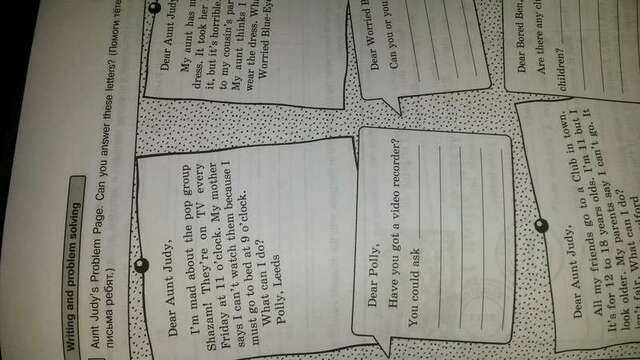 Writing and problem solving
Aunt Judy's Problem Page. Can you answer these letters? (Помоги тёте
письма ребят.)
Dear Aunt Judy,
My aunt has
dress. It took her
it, but it's horrible.
to my cousin's
My aunt thinks I
wear the dress.
Worried Blue-Eyes
Dear Worried
Can you or you
Dear Aunt Judy,
I'm mad about the pop group
Shazam! They're on TV every
Friday at 11 o'clock. My mother
says I can't watch them because I
must go to bed at 9 o'clock.
What can I do?
Polly, Leeds
Dear Polly,
Have you got a video recorder?
You could ask
Dear Bored Ben,
Are there any
children?
Dear Aunt Judy,
All my friends go to a Club in town.
It's for 12 to 18 years olds. I'm 11 but I
look older. My parents say I can't go. It
isn't fair. What can I do?